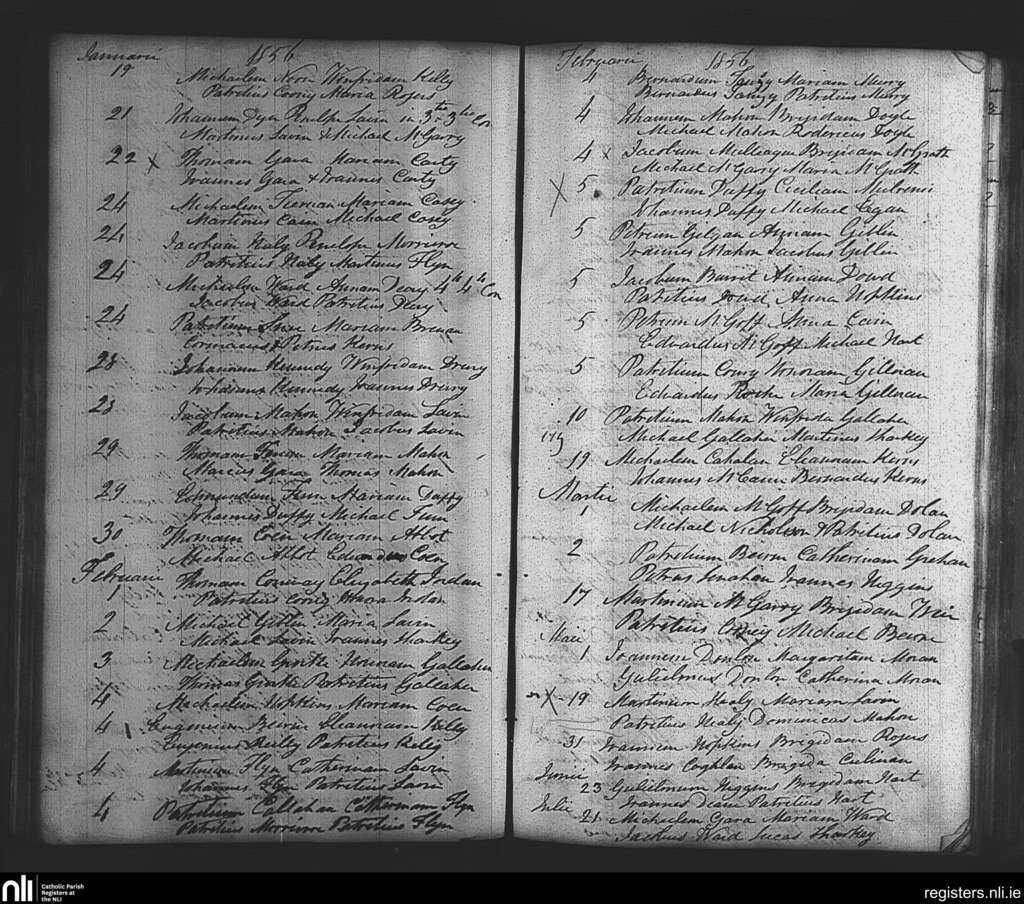 Januarii 1856
19 Michaelem Noon Winfridam Kelly
Patritius Conry Maria Rogers
21 Johannem Dyer Penelope Lavin in 3tio 3tio Con
Martinus Lavin & Michael McGarry
22 x Thomam Gara Mariam Carty
Joannes Gara & Joannes Carty
24 Michaelem Tiernan Mariam Casey
Martinus Cain Michael Casey
24 Jacobum Haly Penelope
Patritius Haly Martinus Flyn
25 Michaelem Ward Annam Deary 4th 4th Con
Jacobus Ward Patritius Deay
24 Patritium Mariam Brenan
Cormacus & Petrus Kerns
28 Johannem Kennedy Winfridam Drury
Johannes Kennedy Joannes Drury
28 Jacobum Mahon Winfridam Lavin
Patritius Mahon Jacobus Lavin
29 Thomam Mariam Mahon
Marcus Gara Thomas Mahon
29 Edmundum Mariam Duffy
Johannes Duffy Michael
30 Thomam Coen Mariam Abbot
Michael Abbot Coen
Februarii
1 Thomam Conway Elizabeth Jordan
Patritius Conry
2 Michael Giblin Maria Lavin
Michael Lavin Joannes Sharkey
3 Michaelem Gallaher
Thomas Patritius Gallaher
4 Michaelem Hopkins Mariam Coen
4 Eugenium Beirne Eleanoram Kelly
Eugenius Reilly Patritius Kelly
4 Martinum Flyn Catherinam Lavin
Johannes Flyn Patritius Lavin
4 Patritium Callehan Catherinam Flyn
Patritius Patritius Flyn
Februarii 1856
4 Bernardum Mariam Murry
Bernardus Patritius Murry
4 Johannem Mahon Brigidam Doyle
Michael Mahon Rodericus Doyle
4 x Jacobum Brigidam McGrath
Michael McGary Maria McGrath
X 5 Patritium Duffy Ceciliam
Johannes Duffy Michael Egan
5 Petrum Annam Giblin
Joannes Mahon Jacobus Giblin
5 Jacobum Barret Annam Dowd
Patritius Dowd Anna Hopkins
5 Petrum McGoff Anna Cain
Edwardus McGoff Michael Hart
5 Patritium Conry Honoram Gilleran
Edwardus Roche Maria Gilleran
10 Patritium Mahon Winfrida Gallaher
Michael Gallaher Martinus Sharkey
19 Michaelem Cahalan Eleanoram Kerns
Johannes McCann Bernardus Kerns
Martii
1 Michaelem McGoff Brigidam Dolan
Michael Nicholson & Patritius Dolan
2 Patritium Beirne Catherinam
Petrus Joannes Higgins
17 Martinum McGarry Brigidam
Patritius Conry Michael Beirne
Maii
1 Joannem Donlon Margaritam Moran
Gulielmus Donlon Catherina Moran
X 19 Martinum Healy Mariam Lavin
Patritius Healy Dominicus Mahon
31 Joannem Hopkins Brigidam Rogers
Joannes Coghlan Brigida Culinan
Junii
23 Gulielmum Higgins Brigidam Hart
Joannes Deane Patritius Hart
Julii
21 Michaelem Gara Mariam Ward
Jacobus Ward Lucas Sharkey
nli Catholic Parish
Registers at
the NLI
registers.nli.ie